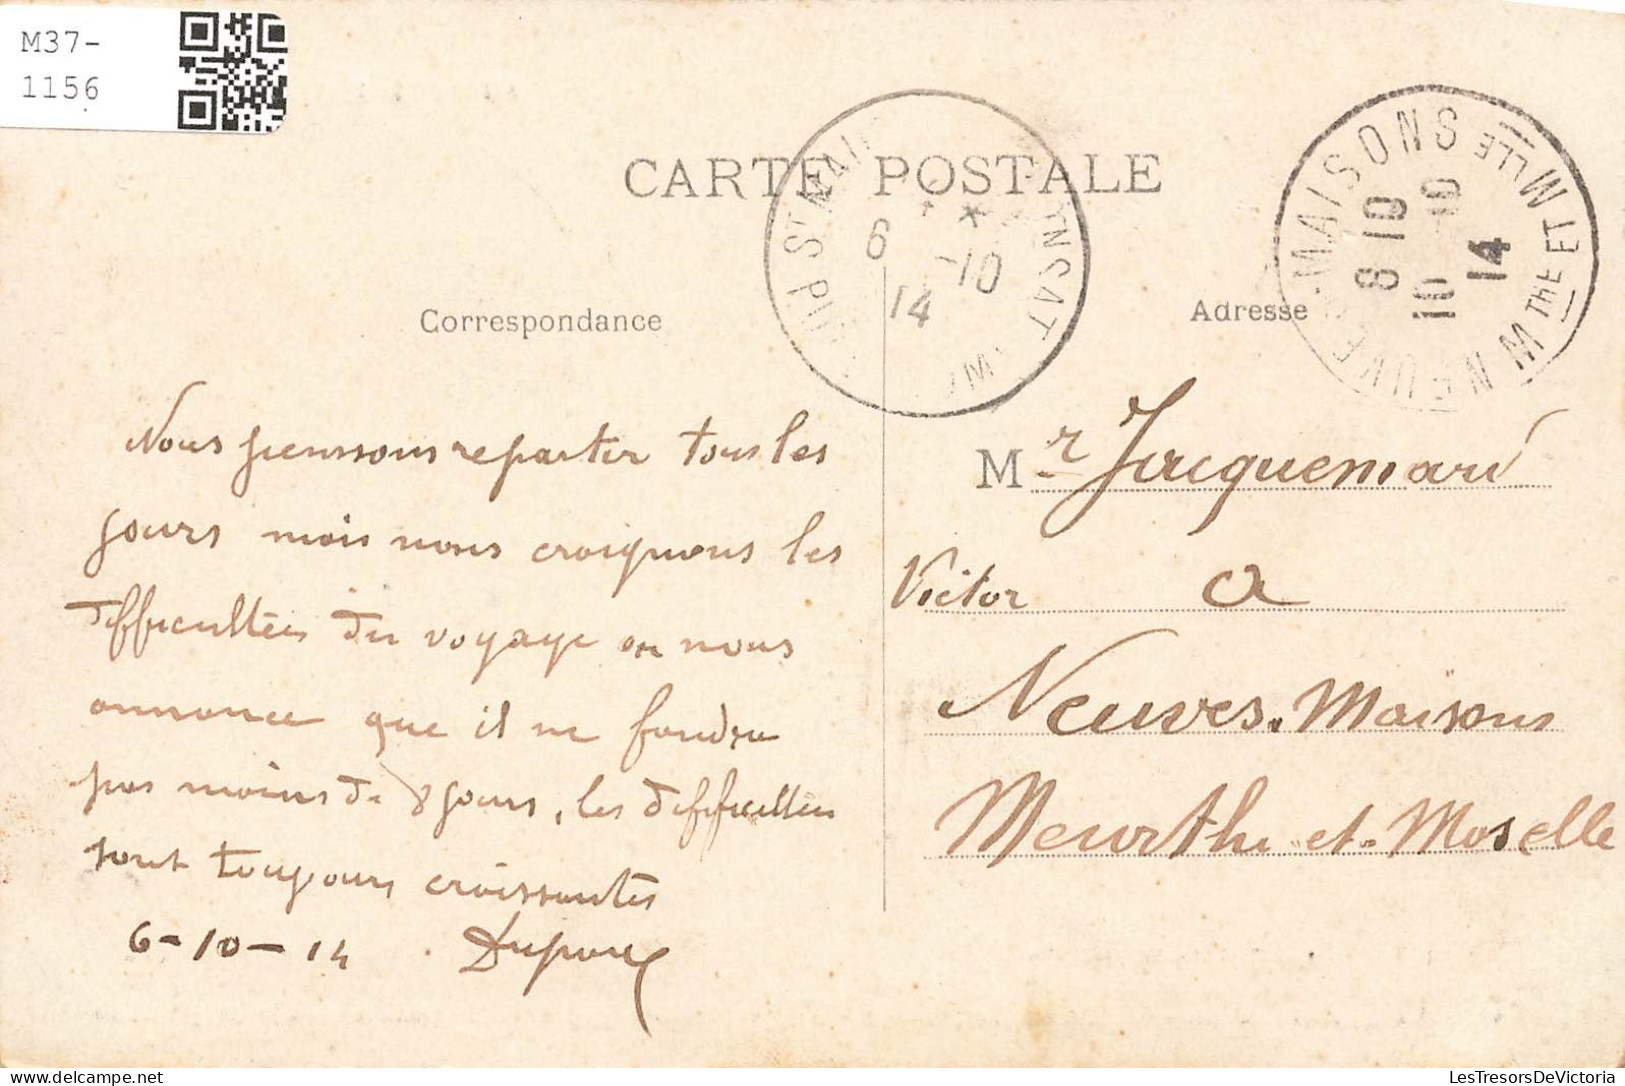 M37-
1156
CARTE POSTALE
6 -10
14
NEUVES-MAISONS
MTHE ET MLLE
8 10
10 -10
14
Correspondance
Adresse
Nous pensons repartir tous les
jours mais nous craignons les
difficultées du voyage on nous
annonce que il ne faudra
pas moins de 8 jours, les difficultées
sont toujours croissantes
6-10-14
Mr Jacquemard
Victor a
Neuves-Maisons
Meurthe et-Moselle
LesTresorsDeVictoria
www.delcampe.net